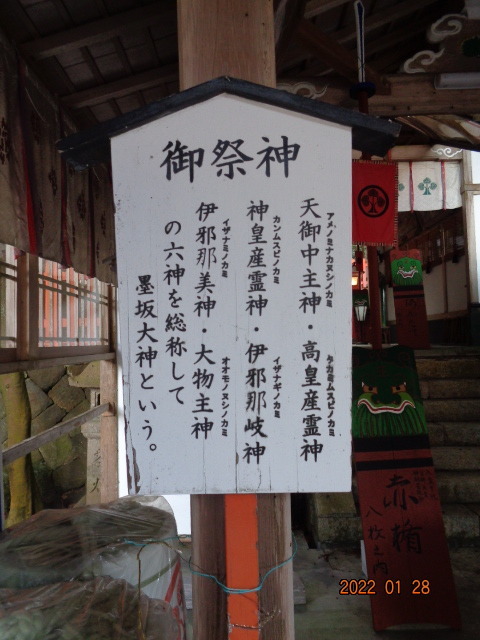 御祭神
アメノミナカヌシノカミ タカミムスビノカミ
天御中主神・高皇産霊神
カンムスビノカミ イザナギノカミ
神皇産霊神・伊邪那岐神
イザナミノカミ オオモノヌシノカミ
伊邪那美神・大物主神
の六神を総称して
墨坂大神という。
赤楯
八枚之内
2022 01 28